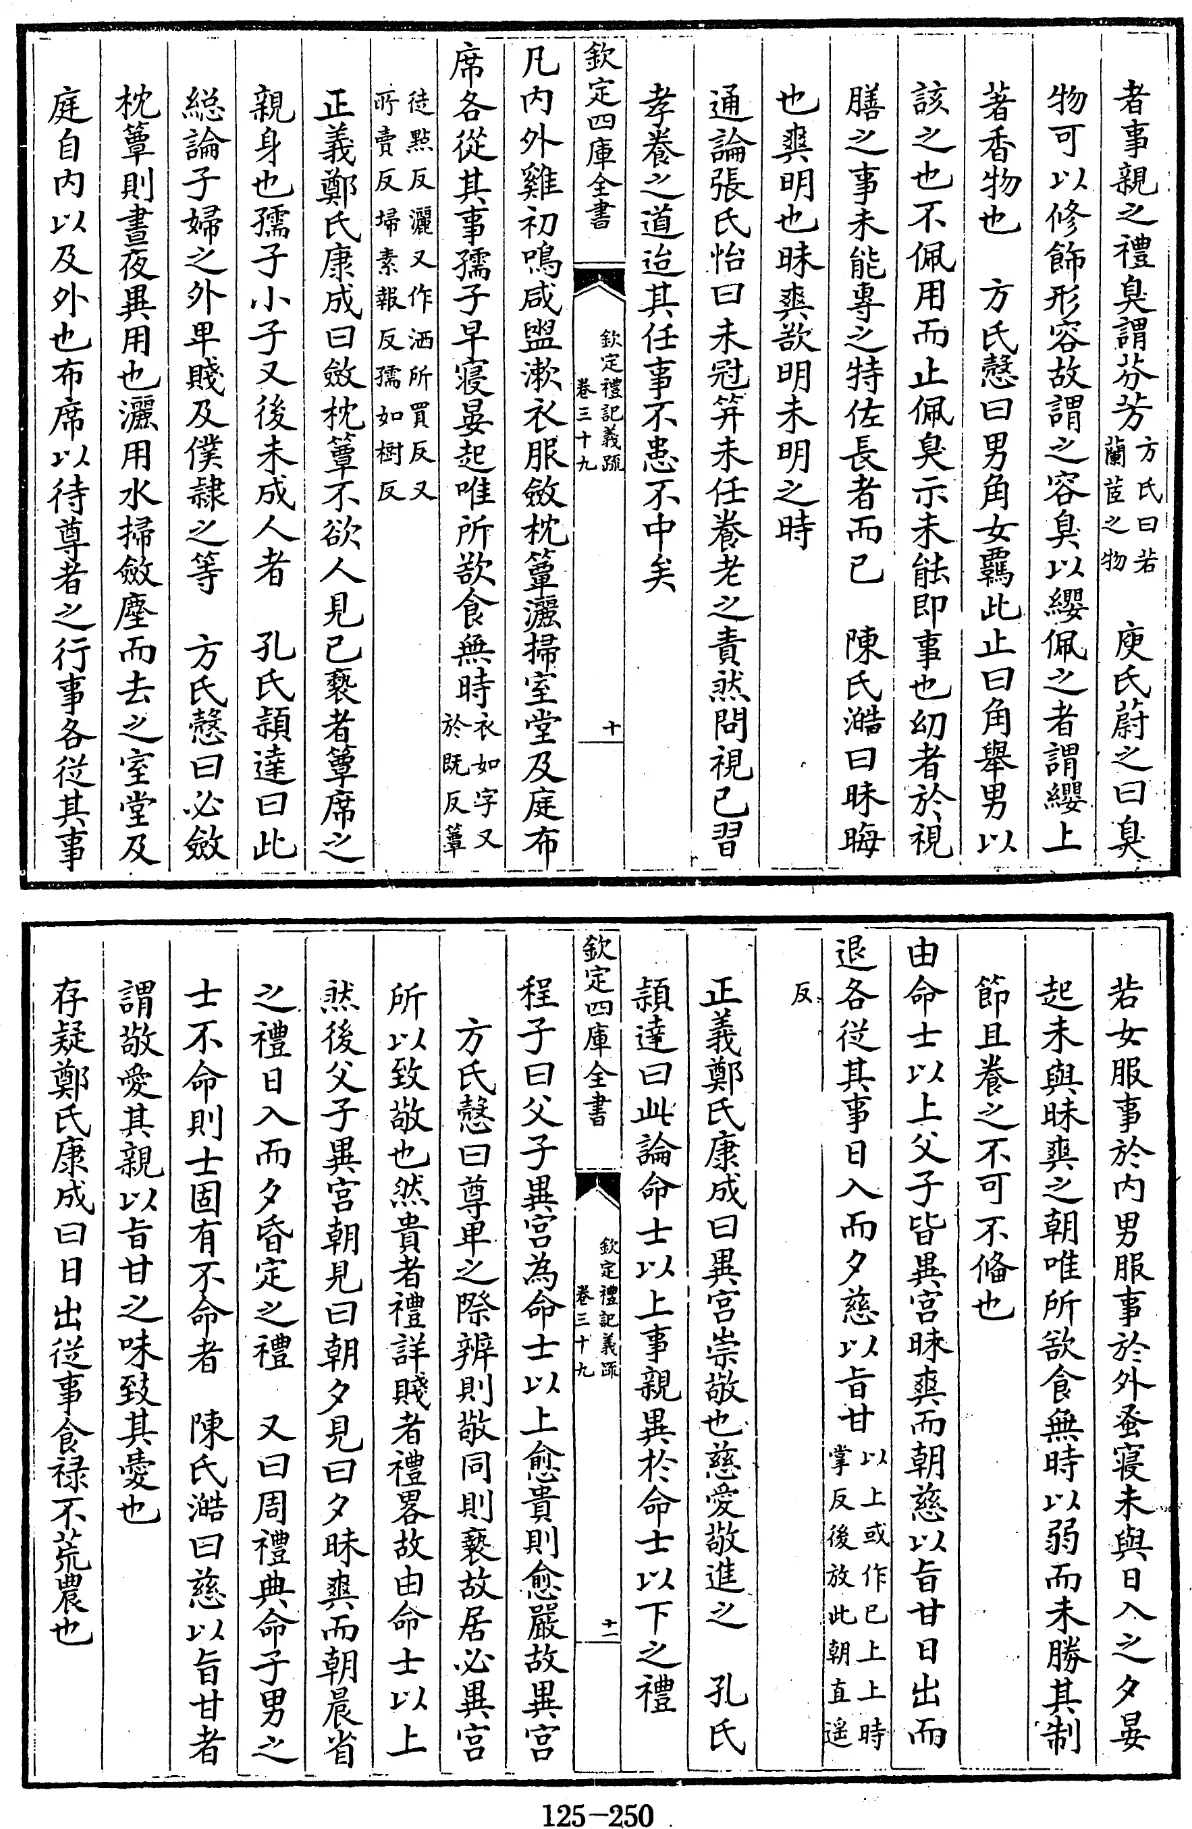 者事親之禮臭謂芬芳方氏曰若蘭茝之物 庾氏蔚之曰臭
物可以修飾形容故謂之容臭以纓佩之者謂纓上
著香物也 方氏慤曰男角女羈此止曰角舉男以
該之也不佩用而止佩臭示未能即事也幼者於視
膳之事未能專之特佐長者而已 陳氏澔曰昧晦
也爽明也昧爽欲明未明之時
通論張氏怡曰未冠笄未任養老之責然問視已習
孝養之道迨其任事不患不中矣
欽定四庫全書 欽定禮記義疏 卷三十九 十
凡内外雞初鳴咸盥漱衣服斂枕簟灑掃室堂及庭布
席各從其事孺子早寢晏起唯所欲食無時衣如字又於既反簟
徒㸃反灑又作洒所買反又所賣反埽素報反孺如樹反
正義鄭氏康成曰斂枕簟不欲人見已褻者簟席之
親身也孺子小子又後未成人者 孔氏頴達曰此
総論子婦之外卑賤及僕隸之等 方氏慤曰必斂
枕簟則晝夜異用也灑用水掃斂塵而去之室堂及
庭自内以及外也布席以待尊者之行事各從其事
若女服事於内男服事於外蚤寢未與日入之夕晏
起未與昧爽之朝唯所欲食無時以弱而未勝其制
節且養之不可不偹也
由命士以上父子皆異宫昧爽而朝慈以旨甘日出而
退各從其事日入而夕慈以旨甘以上或作已上上時掌反後放此朝直遥
反
正義鄭氏康成曰異宫崇敬也慈愛敬進之 孔氏
頴達曰此論命士以上事親異於命士以下之禮
欽定四庫全書 欽定禮記義疏 卷三十九 十一
程子曰父子異宫為命士以上愈貴則愈嚴故異宫
方氏慤曰尊卑之際辨則敬同則褻故居必異宫
所以致敬也然貴者禮詳賤者禮畧故由命士以上
然後父子異宫朝見曰朝夕見曰夕昧爽而朝晨省
之禮日入而夕昏定之禮 又曰周禮典命子男之
士不命則士固有不命者 陳氏澔曰慈以旨甘者
謂敬愛其親以旨甘之味致其愛也
存疑鄭氏康成曰日出從事食禄不荒農也
125-250